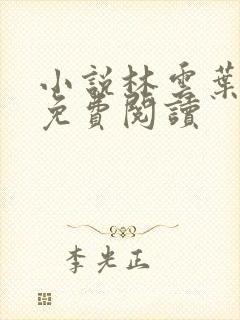 小說林雲葉
免費閱讀
李光正